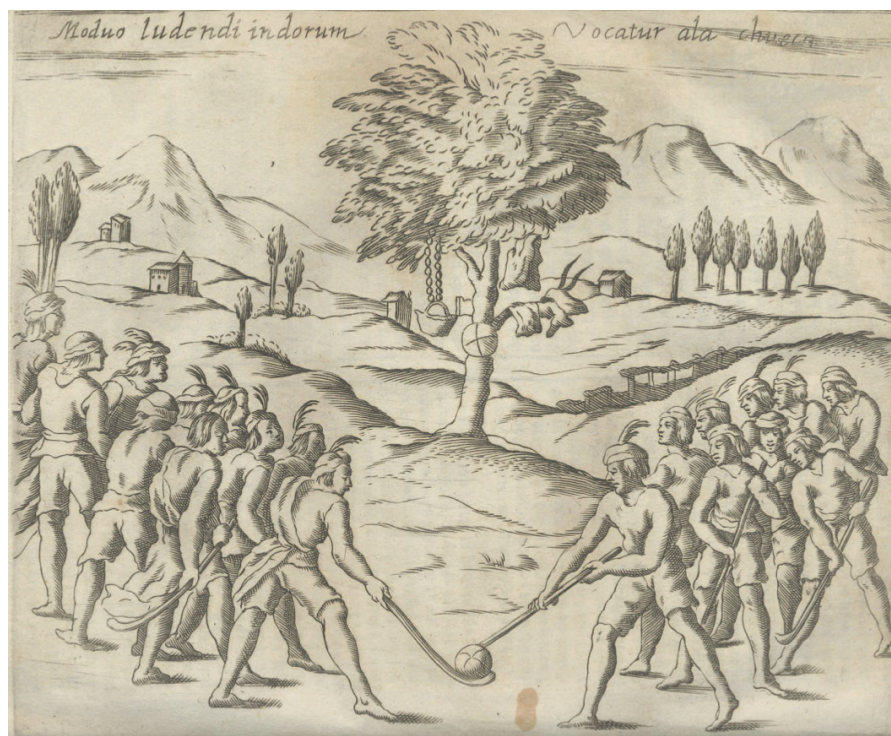 Moduo ludendi indorum Vocatur ala chueca